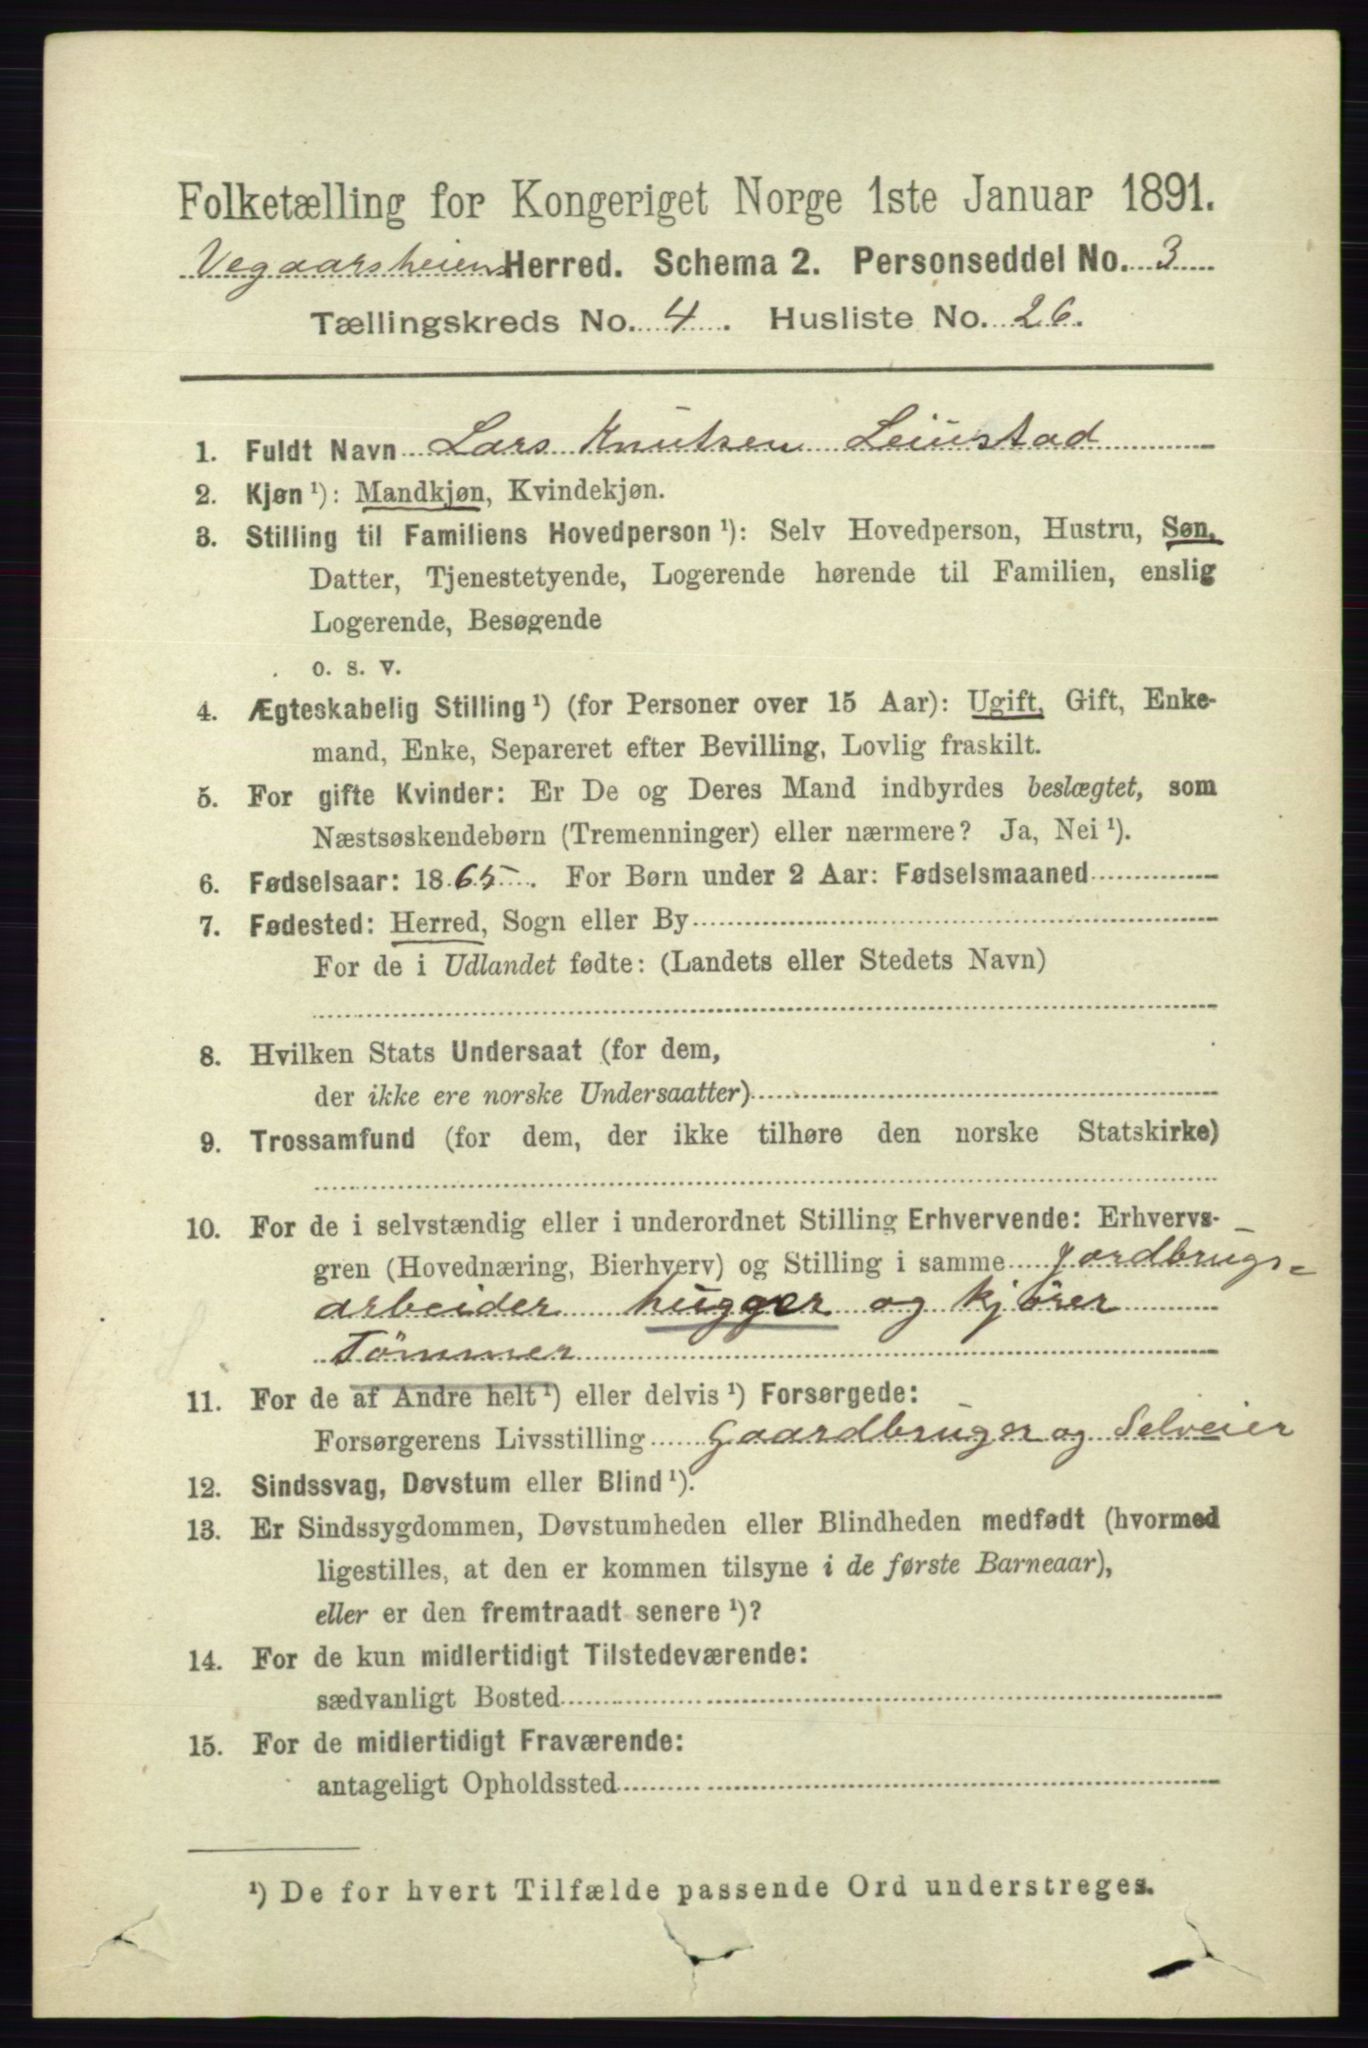 Folketælling for Kongeriget Norge 1ste Januar 1891.
Vegaarsheiens Herred. Schema 2. Personseddel No. 3
Tællingskreds No. 4. Husliste No. 26.
1. Fuldt Navn Lars Knutsen Leiustad
2. Kjøn¹): Mandkjøn, Kvindekjøn.
3. Stilling til Familiens Hovedperson¹): Selv Hovedperson, Hustru, Søn,
Datter, Tjenestetyende, Logerende hørende til Familien, enslig
Logerende, Besøgende
o. s. v.
4. Ægteskabelig Stilling¹) (for Personer over 15 Aar): Ugift, Gift, Enke-
mand, Enke, Separeret efter Bevilling, Lovlig fraskilt.
5. For gifte Kvinder: Er De og Deres Mand indbyrdes beslægtet, som
Næstsøskendebørn (Tremenninger) eller nærmere? Ja, Nei¹).
6. Fødselsaar: 1865. For Børn under 2 Aar: Fødselsmaaned
7. Fødested: Herred, Sogn eller By
For de i Udlandet fødte: (Landets eller Stedets Navn)
8. Hvilken Stats Undersaat (for dem,
der ikke ere norske Undersaatter)
9. Trossamfund (for dem, der ikke tilhøre den norske Statskirke)
10. For de i selvstændig eller i underordnet Stilling Erhvervende: Erhvervs-
gren (Hovednæring, Bierhverv) og Stilling i samme Jordbrugs-
arbeider hugger og kjörer
Tömmer
11. For de af Andre helt¹) eller delvis¹) Forsørgede:
Forsørgerens Livsstilling Gaardbruger og Selveier
12. Sindssvag, Døvstum eller Blind¹).
13. Er Sindssygdommen, Døvstumheden eller Blindheden medfødt (hvormed
ligestilles, at den er kommen tilsyne i de første Barneaar),
eller er den fremtraadt senere¹)?
14. For de kun midlertidigt Tilstedeværende:
sædvanligt Bosted
15. For de midlertidigt Fraværende:
antageligt Opholdssted
¹) De for hvert Tilfælde passende Ord understreges.